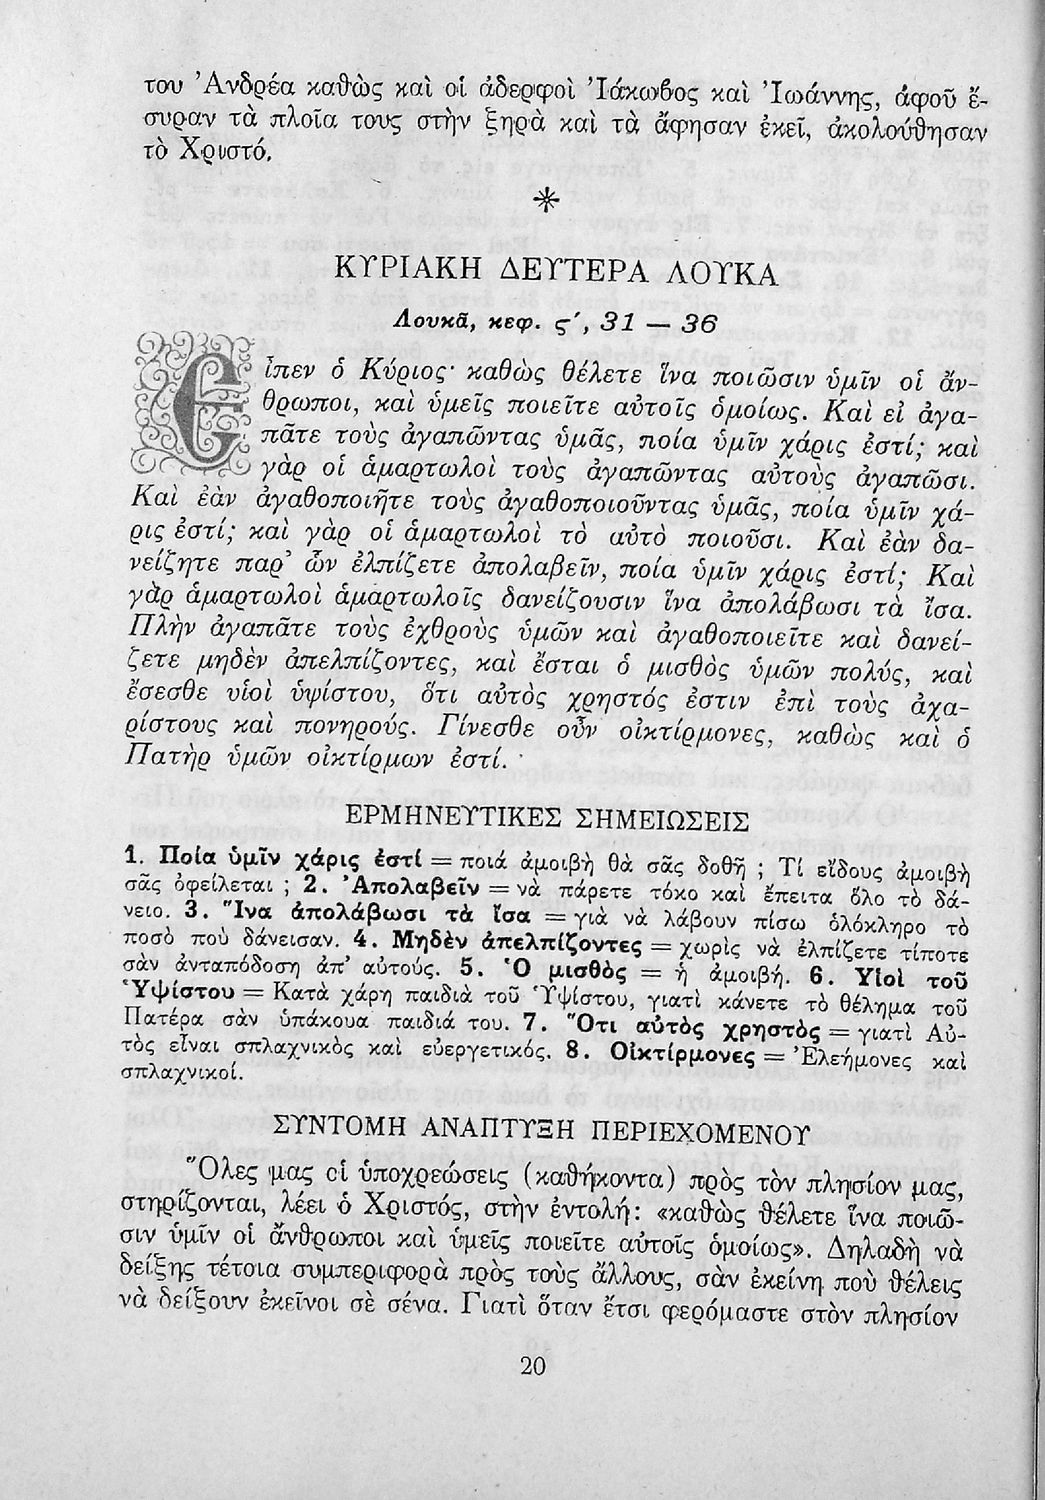 του Ἀνδρέα καθὼς καὶ οἱ ἀδερφοὶ Ἰάκωβος καὶ Ἰωάννης, ἀφοῦ ἔ-
συραν τὰ πλοῖα τους στὴν ξηρὰ καὶ τὰ ἄφησαν ἐκεῖ, ἀκολούθησαν
τὸ Χριστό.
*
ΚΥΡΙΑΚΗ ΔΕΥΤΕΡΑ ΛΟΥΚΑ
Λουκᾶ, κεφ. ς´, 31 — 36
Εἶπεν ὁ Κύριος· καθὼς θέλετε ἵνα ποιῶσιν ὑμῖν οἱ ἄν-
θρωποι, καὶ ὑμεῖς ποιεῖτε αὐτοῖς ὁμοίως. Καὶ εἰ ἀγα-
πᾶτε τοὺς ἀγαπῶντας ὑμᾶς, ποία ὑμῖν χάρις ἐστί; καὶ
γὰρ οἱ ἁμαρτωλοὶ τοὺς ἀγαπῶντας αὐτοὺς ἀγαπῶσι.
Καὶ ἐὰν ἀγαθοποιῆτε τοὺς ἀγαθοποιοῦντας ὑμᾶς, ποία ὑμῖν χά-
ρις ἐστί; καὶ γὰρ οἱ ἁμαρτωλοὶ τὸ αὐτὸ ποιοῦσι. Καὶ ἐὰν δα-
νείζητε παρ’ ὧν ἐλπίζετε ἀπολαβεῖν, ποία ὑμῖν χάρις ἐστί; Καὶ
γὰρ ἁμαρτωλοὶ ἁμαρτωλοῖς δανείζουσιν ἵνα ἀπολάβωσι τὰ ἴσα.
Πλὴν ἀγαπᾶτε τοὺς ἐχθροὺς ὑμῶν καὶ ἀγαθοποιεῖτε καὶ δανεί-
ζετε μηδὲν ἀπελπίζοντες, καὶ ἔσται ὁ μισθὸς ὑμῶν πολύς, καὶ
ἔσεσθε υἱοὶ ὑψίστου, ὅτι αὐτὸς χρηστός ἐστιν ἐπὶ τοὺς ἀχα-
ρίστους καὶ πονηρούς. Γίνεσθε οὖν οἰκτίρμονες, καθὼς καὶ ὁ
Πατὴρ ὑμῶν οἰκτίρμων ἐστί.
ΕΡΜΗΝΕΥΤΙΚΕΣ ΣΗΜΕΙΩΣΕΙΣ
1. Ποία ὑμῖν χάρις ἐστί = ποιά ἀμοιβὴ θὰ σᾶς δοθῆ ; Τί εἴδους ἀμοιβὴ
σᾶς ὀφείλεται ; 2. Ἀπολαβεῖν = νὰ πάρετε τόκο καὶ ἔπειτα ὅλο τὸ δά-
νειο. 3. Ἵνα ἀπολάβωσι τὰ ἴσα = γιὰ νὰ λάβουν πίσω ὁλόκληρο τὸ
ποσὸ ποὺ δάνεισαν. 4. Μηδὲν ἀπελπίζοντες = χωρὶς νὰ ἐλπίζετε τίποτε
σὰν ἀνταπόδοση ἀπ’ αὐτούς. 5. Ὁ μισθὸς = ἡ ἀμοιβή. 6. Υἱοὶ τοῦ
Ὑψίστου = Κατὰ χάρη παιδιὰ τοῦ Ὑψίστου, γιατὶ κάνετε τὸ θέλημα τοῦ
Πατέρα σὰν ὑπάκουα παιδιά του. 7. Ὅτι αὐτὸς χρηστὸς = γιατὶ Αὐ-
τὸς εἶναι σπλαχνικὸς καὶ εὐεργετικός. 8. Οἰκτίρμονες = Ἐλεήμονες καὶ
σπλαχνικοί.
ΣΥΝΤΟΜΗ ΑΝΑΠΤΥΞΗ ΠΕΡΙΕΧΟΜΕΝΟΥ
Ὅλες μας οἱ ὑποχρεώσεις (καθήκοντα) πρὸς τὸν πλησίον μας,
στηρίζονται, λέει ὁ Χριστός, στὴν ἐντολή: «καθὼς θέλετε ἵνα ποιῶ-
σιν ὑμῖν οἱ ἄνθρωποι καὶ ὑμεῖς ποιεῖτε αὐτοῖς ὁμοίως». Δηλαδὴ νὰ
δείξης τέτοια συμπεριφορὰ πρὸς τοὺς ἄλλους, σὰν ἐκείνη ποὺ θέλεις
νὰ δείξουν ἐκεῖνοι σὲ σένα. Γιατὶ ὅταν ἔτσι φερόμαστε στὸν πλησίον
20